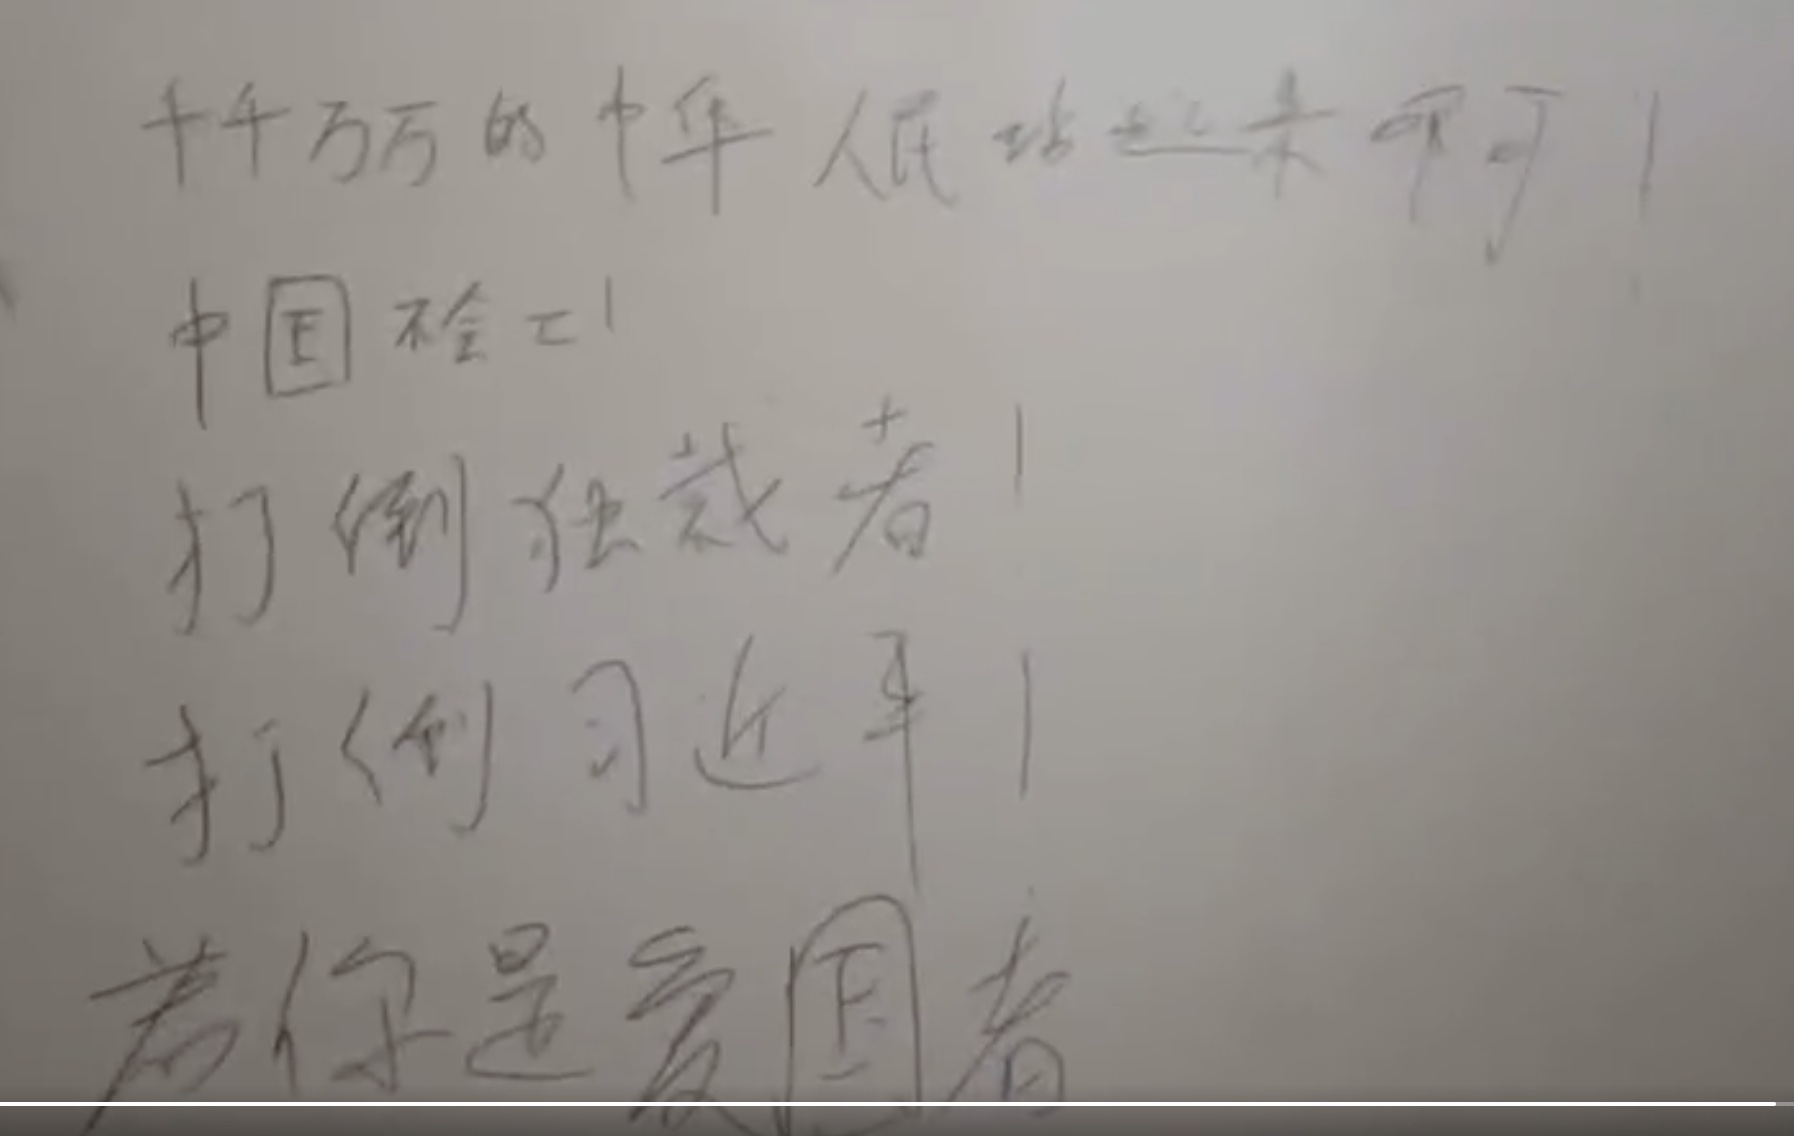 千千万万的中华人民站起来啊!
中国不会亡!
打倒独裁者!
打倒习近平!
若你是爱国者